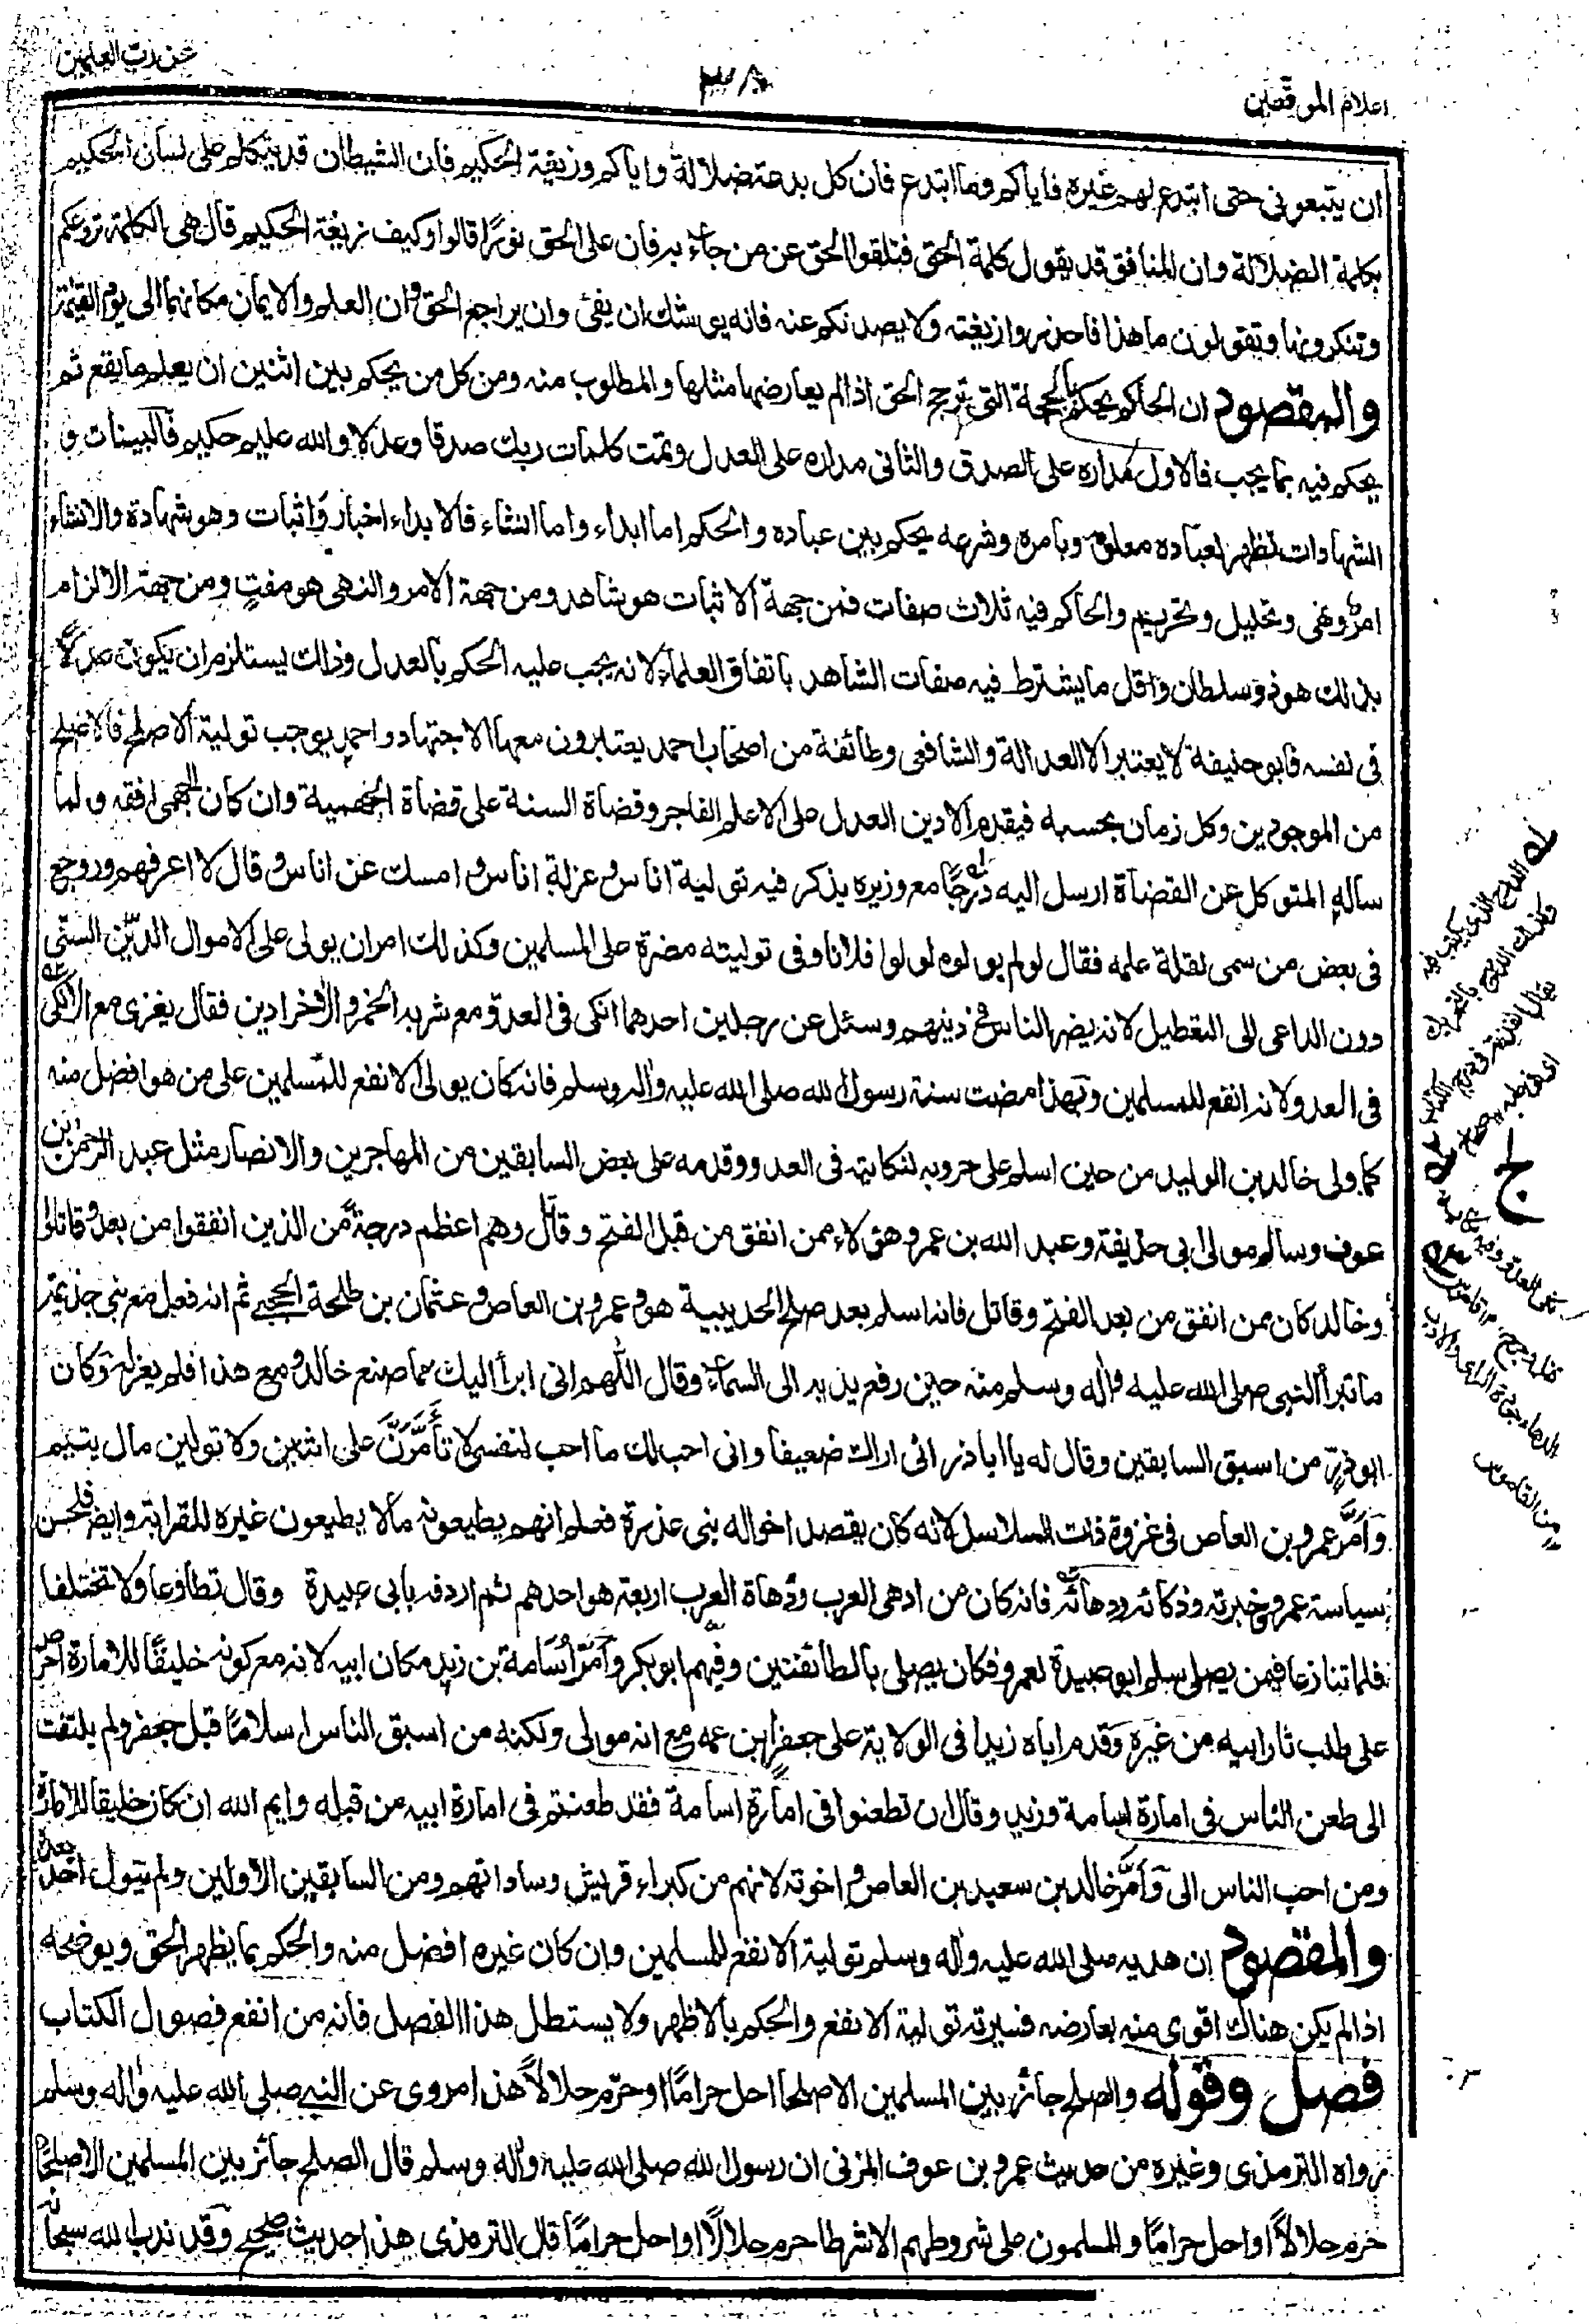 اعلام الموقعين
عن رب العلمين
ان يتبعوني حتى ابتدع لهم غيره فاياكم وما ابتدع فان كل بدعة ضلالة واياكم وزيغة الحكيم فان الشيطان قد يتكلم على لسان الحكيم
بكلمة الضلالة وان المنافق قد يقول كلمة الحق فتلقوا الحق عن من جاء به فان على الحق نورًا قالوا وكيف زيغة الحكيم قال هى الكلمة تروعكم
وتنكرونها وتقولون ما هذا فاحذروا زيغته ولا يصدنكم عنه فانه يوشك ان يفئ وان يراجع الحق وان العلم والايمان مكانهما الى يوم القيمة
والمقصود ان الحاكم يحكم بالحجة التى ترجح الحق اذا لم يعارضها مثلها والمطلوب منه ومن كل من يحكم بين اثنين ان يعلم ما يقع ثم
يحكم فيه بما يجب فالاول مداره على الصدق والثانى مداره على العدل وتمت كلمات ربك صدقا وعدلا والله عليم حكيم فالبينات و
الشهادات تظهر لعباده معلومه وبامره وشرعه يحكم بين عباده والحكم اما ابداء واما انشاء فالابداء اخبار واثبات وهو شهادة والانشاء
امر ونهى وتحليل وتحريم والحاكم فيه ثلاث صفات فمن جهة الاثبات هو شاهد ومن جهة الامر والنهى هو مفتٍ ومن جهة الالزام
بذلك هو ذو سلطان واقل ما يشترط فيه صفات الشاهد باتفاق العلماء لانه يجب عليه الحكم بالعدل وذلك يستلزم ان يكون عدلًا
فى نفسه فابو حنيفة لا يعتبر الا العدالة والشافعى وطائفة من اصحاب احمد يعتبرون معها الاجتهاد واحمد يوجب تولية الاصلح فالاصلح
من الموجودين وكل زمان بحسبه فيقدم الادين العدل على الاعلم الفاجر وقضاة السنة على قضاة الجهمية وان كان الجهمى افقه ولما
ساله المتوكل عن القضاة ارسل اليه دُرجًا مع وزيره يذكر فيه تولية اناس وعزلة اناس وامسك عن اناس وقال لا اعرفهم وروجع
فى بعض من سمى لقلة علمه فقال لو لم يولوه لولوا فلانا وفى توليته مضرة على المسلمين وكذلك امر ان يولى على الاموال الديّن السنّى
دون الداعى الى التعطيل لانه يضر الناس فى دينهم وسئل عن رجلين احدهما انكى فى العدوّ مع شربه الخمر والاخر ادين فقال يغزى مع الانكى
فى العدو لانه انفع للمسلمين وبهذا مضت سنة رسول الله صلى الله عليه واله وسلم فانه كان يولى الانفع للمسلمين على من هو افضل منه
كما ولى خالد بن الوليد من حين اسلم على حروبه لنكايته فى العدو وقدمه على بعض السابقين من المهاجرين والانصار مثل عبد الرحمٰن بن
عوف وسالم مولى ابى حذيفة وعبد الله بن عمر وهؤلاء ممن انفق من قبل الفتح وقاتل وهم اعظم درجة من الذين انفقوا من بعد وقاتلوا
وخالد كان ممن انفق من بعد الفتح وقاتل فانه اسلم بعد صلح الحديبية هو وعمرو بن العاص وعثمان بن طلحة الحجبى ثم انه فعل مع بنى جذيمة
ما تبرأ النبى صلى الله عليه واله وسلم منه حين رفع يديه الى السماء وقال اللّٰهم انى ابرأ اليك مما صنع خالد ومع هذا فلم يعزله وكان
ابو ذرّ من اسبق السابقين وقال له يا ابا ذر انى اراك ضعيفا وانى احب لك ما احب لنفسى لا تأمّرنّ على اثنين ولا تولين مال يتيم
وأمّر عمرو بن العاص فى غزوة ذات السلاسل لانه كان يقصد اخواله بنى عذرة فعلم انهم يطيعونه مالا يطيعون غيره للقرابة وايض فلحسن
سياسة عمرو وخبرته وذكائه ودهائه فانه كان من ادهى العرب ودُهاة العرب اربعة هو احدهم ثم اردفه بابى عبيدة وقال تطاوعا ولا تختلفا
فلما تنازعا فيمن يصلى سلم ابو عبيدة لعمرو فكان يصلى بالطائفتين وفيهم ابو بكر وأمّر أُسامة بن زيد مكان ابيه لانه مع كونه خليقًا للامارة احرص
على طلب ثار ابيه من غيره وقدم اباه زيدا فى الولاية على جعفر ابن عمه مع انه مولى ولكنه من اسبق الناس اسلامًا قبل جعفر ولم يلتفت
الى طعن الناس فى امارة اسامة وزيد وقال ان تطعنوا فى امارة اسامة فقد طعنتم فى امارة ابيه من قبله وايم الله ان كان خليقا للامارة
ومن احب الناس الى وأمّر خالد بن سعيد بن العاص واخوته لانهم من كبراء قريش وساداتهم ومن السابقين الاولين ولم يتول احد بعده
والمقصود ان هديه صلى الله عليه واله وسلم تولية الانفع للمسلمين وان كان غيره افضل منه والحكم بما يظهر الحق ويوضحه
اذا لم يكن هناك اقوى منه يعارضه فسيرته تولية الانفع والحكم بالاظهر ولا يستطل هذا الفصل فانه من انفع فصول الكتاب
فصل وقوله والصلح جائز بين المسلمين الا صلحا احل حرامًا او حرّم حلالاً هذا مروى عن النبى صلى الله عليه واله وسلم
رواه الترمذى وغيره من حديث عمرو بن عوف المزنى ان رسول الله صلى الله عليه واله وسلم قال الصلح جائز بين المسلمين الا صلحًا
حرم حلالاً او احل حرامًا والمسلمون على شروطهم الا شرطا حرم حلالًا او احل حرامًا قال الترمذى هذا حديث صحيح وقد ندب الله سبحانه
الدرج الذى يكتب فيه
وكذلك الدرج بالتحريك
يقال انفذته فى درج الكتاب
اى فى طيه
من القاموس